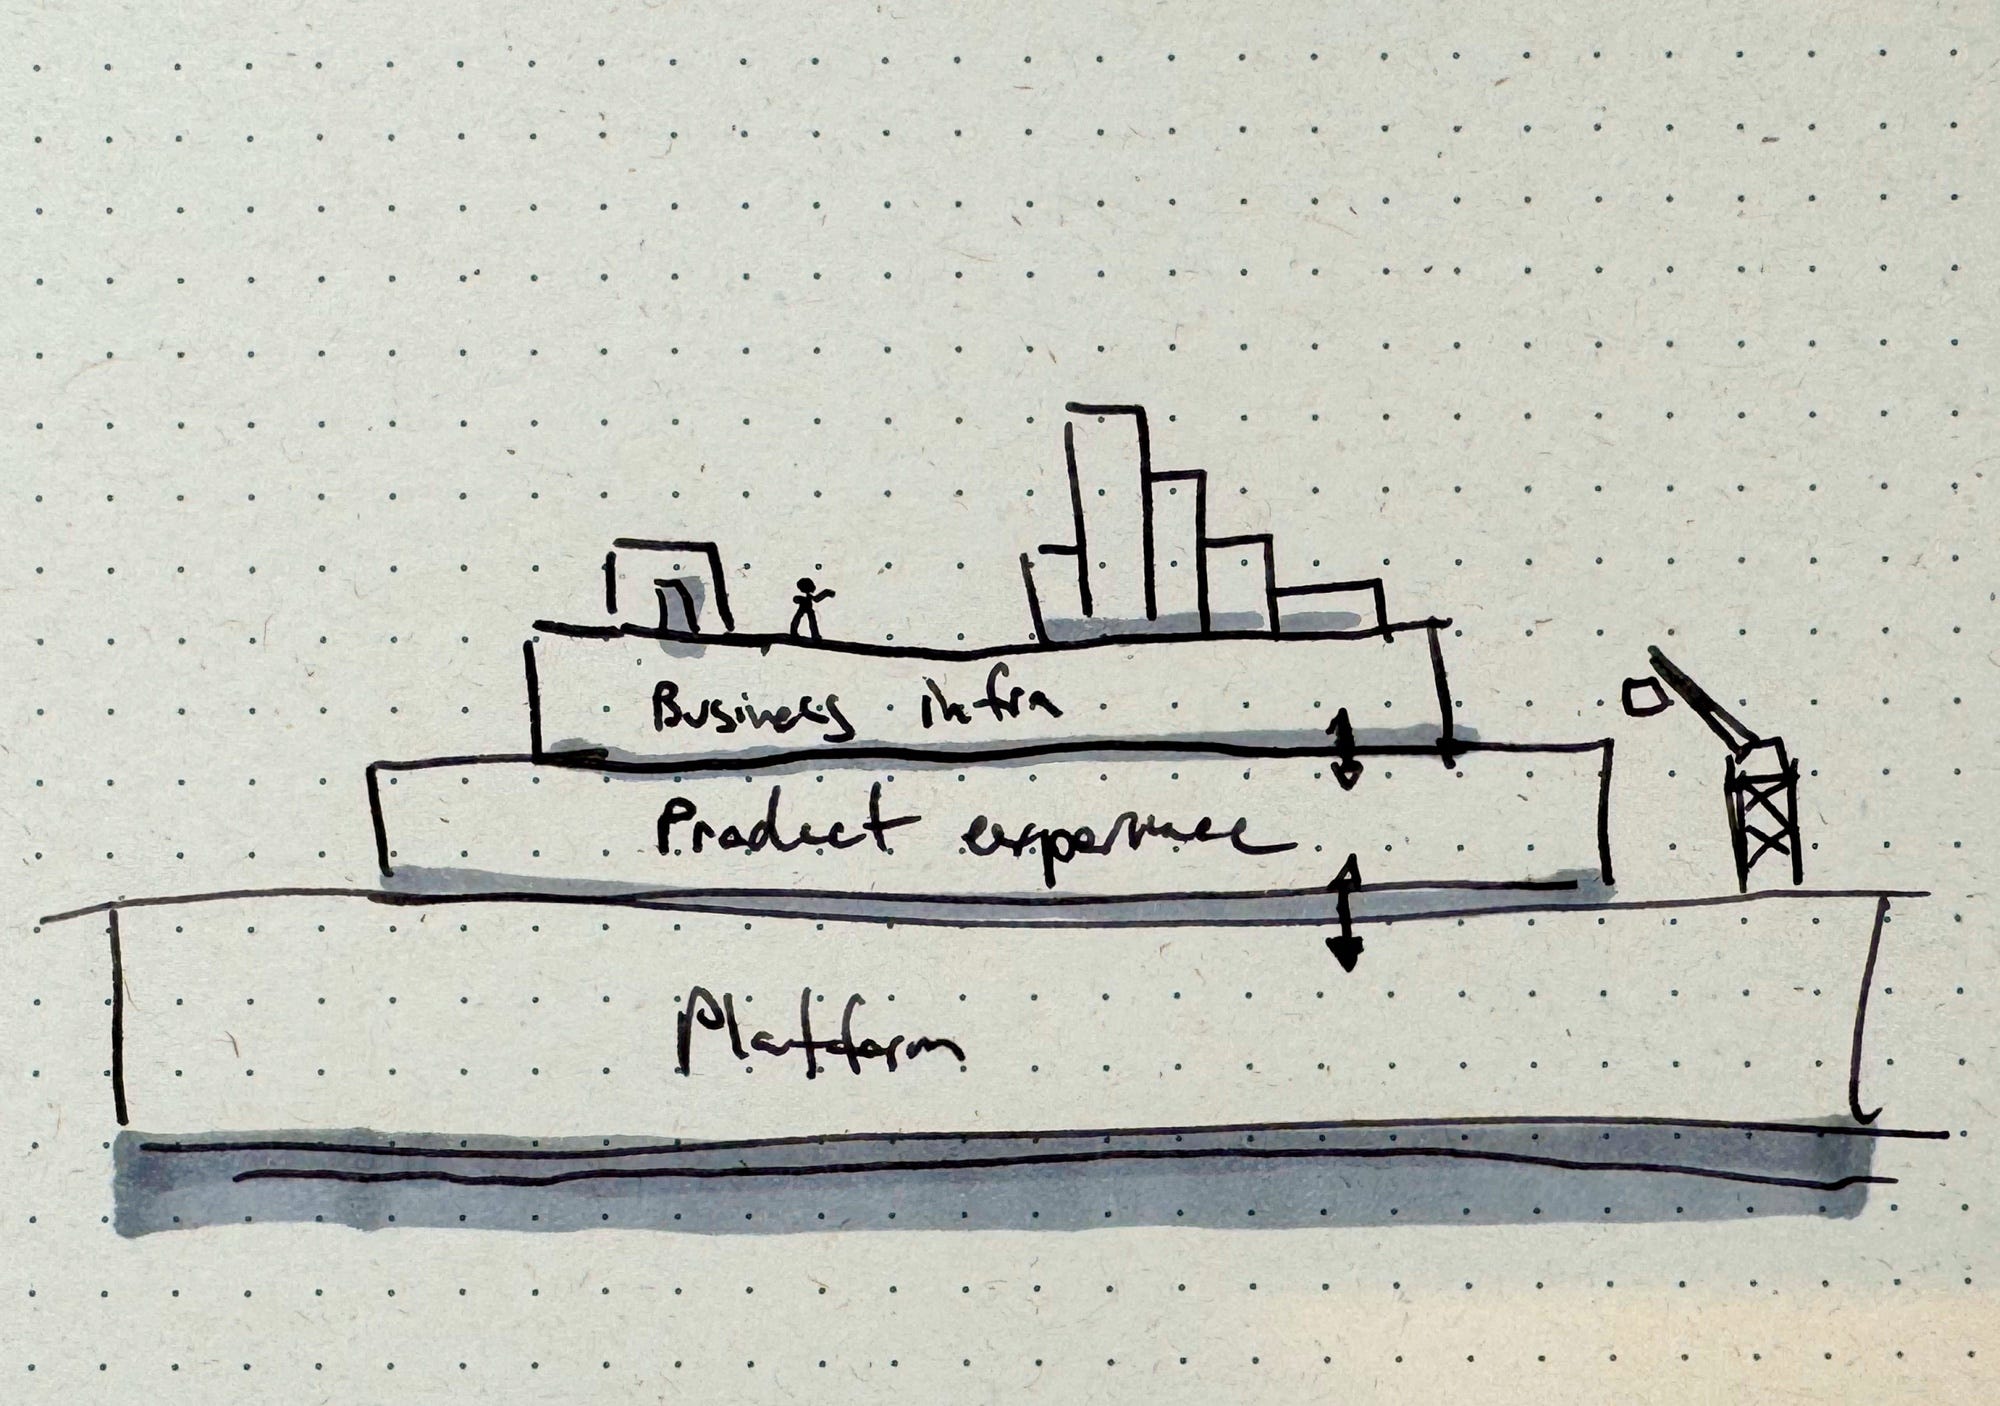 Business infra
Product experience
Platform